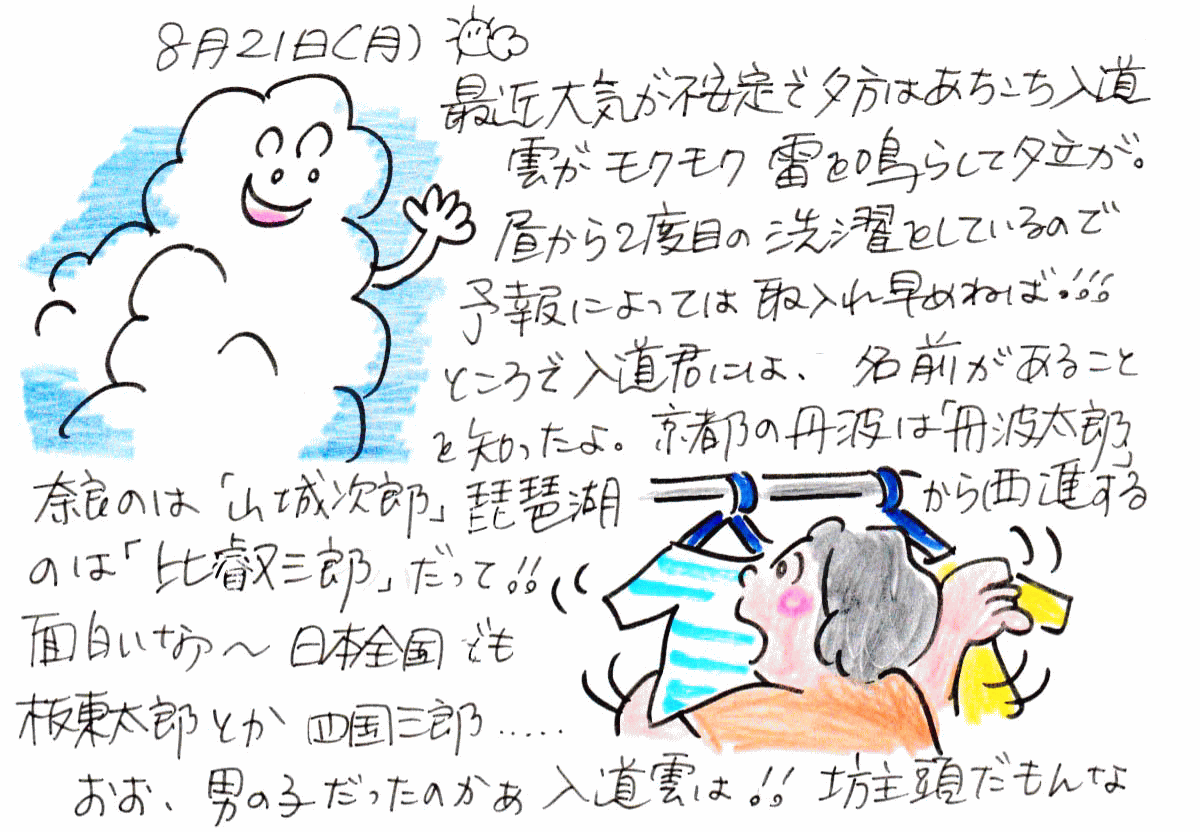 8月21日(月)
最近大気が不安定で夕方はあちこち入道
雲がモクモク 雷を鳴らして夕立が。
昼から2度目の洗濯をしているので
予報によっては取入れ早めねば!!!
ところで入道君には、名前があること
を知ったよ。京都の丹波は「丹波太郎」
奈良のは「山城次郎」琵琶湖から西進する
のは「比叡三郎」だって!!
面白いなぁ〜 日本全国でも
板東太郎とか 四国三郎.....
おお、男の子だったのかぁ 入道雲は!! 坊主頭だもんな